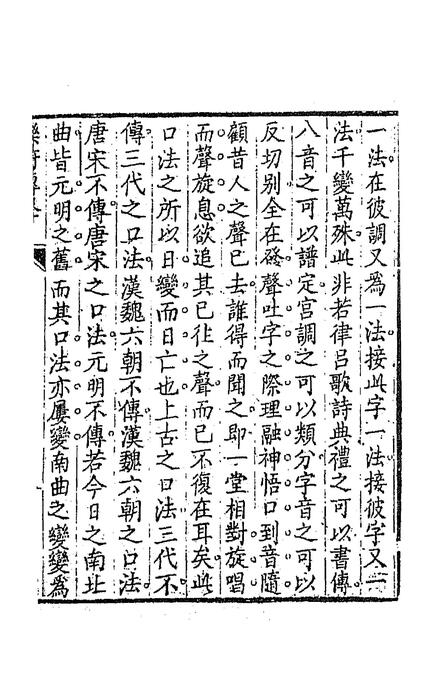 一法在彼調又爲一法接此字一法接彼字又一
法千變萬殊此非若律呂歌詩典禮之可以書傳
八音之可以譜定宮調之可以類分字音之可以
反切别全在發聲吐字之際理融神悟口到音隨
顧昔人之聲已去誰得而聞之即一堂相對旋唱
而聲旋息欲追其已往之聲而已不復在耳矣此
口法之所以日變而日亡也上古之口法三代不
傳三代之口法漢魏六朝不傳漢魏六朝之口法
唐宋不傳唐宋之口法元明不傳若今日之南北
曲皆元明之舊而其口法亦屢變南曲之變變爲
樂府傳聲